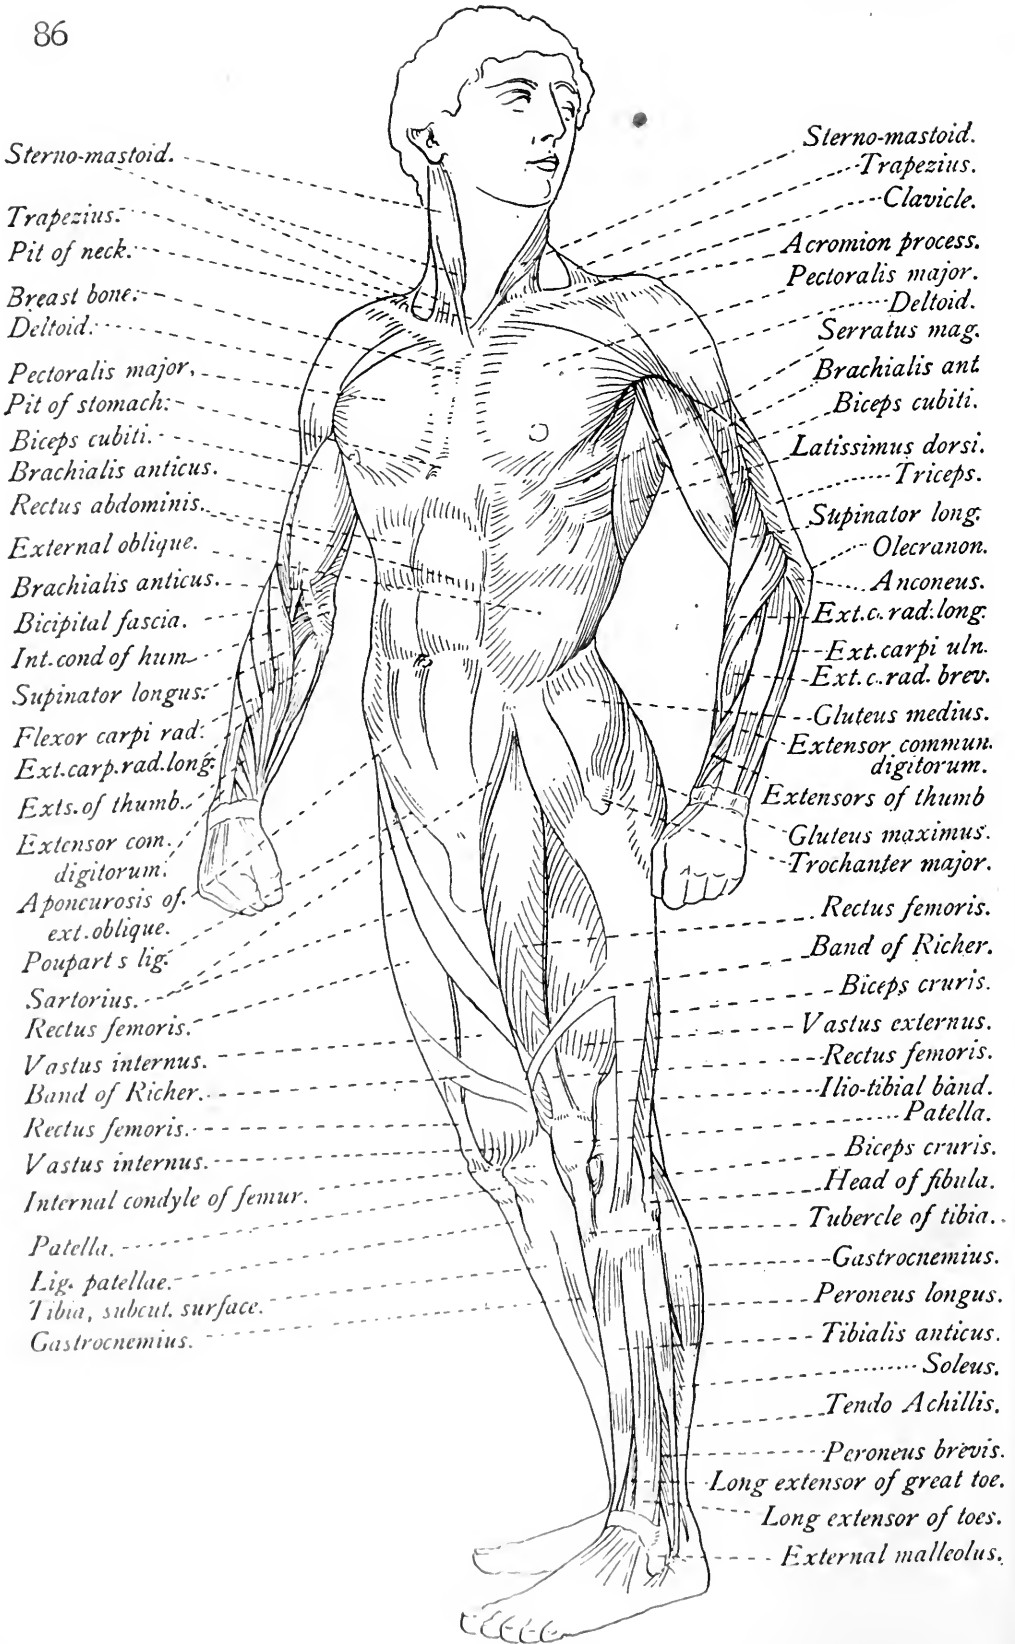 86
Sterno-mastoid.
Trapezius.
Pit of neck.
Breast bone.
Deltoid.
Pectoralis major.
Pit of stomach.
Biceps cubiti.
Brachialis anticus.
Rectus abdominis.
External oblique.
Brachialis anticus.
Bicipital fascia.
Int. cond of hum
Supinator longus.
Flexor carpi rad.
Ext. carp. rad. long.
Exts. of thumb.
Extensor com.
digitorum.
Aponeurosis of.
ext. oblique.
Poupart s lig.
Sartorius.
Rectus femoris.
Vastus internus.
Band of Richer.
Rectus femoris.
Vastus internus.
Internal condyle of femur.
Patella.
Lig. patellae.
Tibia, subcut. surface.
Gastrocnemius.
Sterno-mastoid.
Trapezius.
Clavicle.
Acromion process.
Pectoralis major.
Deltoid.
Serratus mag.
Brachialis ant.
Biceps cubiti.
Latissimus dorsi.
Triceps.
Supinator long.
Olecranon.
Anconeus.
Ext. c. rad. long.
Ext. carpi uln.
Ext. c. rad. brev.
Gluteus medius.
Extensor commun.
digitorum.
Extensors of thumb
Gluteus maximus.
Trochanter major.
Rectus femoris.
Band of Richer.
Biceps cruris.
Vastus externus.
Rectus femoris.
Ilio-tibial band.
Patella.
Biceps cruris.
Head of fibula.
Tubercle of tibia.
Gastrocnemius.
Peroneus longus.
Tibialis anticus.
Soleus.
Tendo Achillis.
Peroneus brevis.
Long extensor of great toe.
Long extensor of toes.
External malleolus.